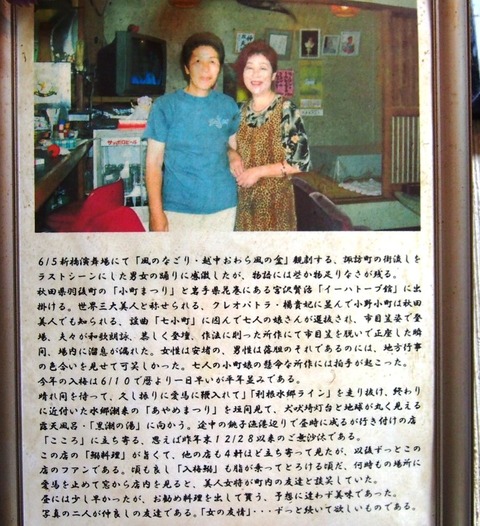 サッポロビール
6/5新橋演舞場にて「風のなごり・越中おわら風の盆」観劇する、諏訪町の街流しを
ラストシーンにした男女の踊りに感激したが、物語には些か物足りなさが残る。
秋田県羽後町の「小町まつり」と岩手県花巻にある宮沢賢治「イーハトーブ館」に出
掛ける。世界三大美人と称せられる、クレオパトラ・楊貴妃に並んで小野小町は秋田
美人でも知られる、謡曲「七小町」に因んで七人の娘さんが選抜され、市目笠姿で登
場、夫々が和歌朗詠、恭しく登壇、作法に則った所作にて市目笠を脱いで正座した瞬
間、場内に溜息が漏れた。女性は安堵の、男性は落胆のそれであるのには、地方行事
の色合いを見せて可笑しかった。七人の小町娘の懸命な所作には拍手が起こった。
今年の入梅は6/10で暦より一日早いが平年並みである。
晴れ間を待って、久し振りに愛馬に鞭入れて」「利根水郷ライン」を走り抜け、終わり
に近付いた水郷潮来の「あやめまつり」を垣間見て、犬吠埼灯台と地球が丸く見える
露天風呂・「黒潮の湯」に向かう。途中の銚子漁港辺りで昼時に成るが行き付けの店
「こころ」に立ち寄る、思えば昨年末12/28以来のご無沙汰である。
この店の「鰯料理」が旨くて、他の店も4軒ほど立ち寄って見たが、以後ずっとこの
店のファンである。頃も良し「入梅鰯」も脂が乗ってとろける頃だ、何時もの場所に
愛馬を止めて窓から店内を見ると、美人女将が町内の友達と談笑していた。
昼には少し早かったが、お勧め料理を出して貰う、予想に違わず美味であった。
写真の二人が仲良しの友達である。「女の友情」・・・ずっと続いて欲しいものである。